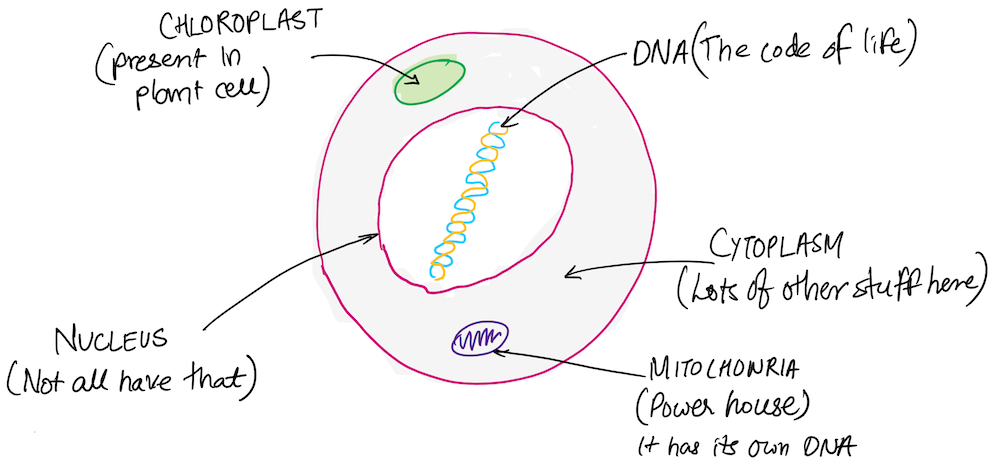 CHLOROPLAST
(present in
plant cell)
DNA (The code of life)
CYTOPLASM
(Lots of other stuff here)
NUCLEUS
(Not all have that)
MITOCHONRIA
(Power house)
It has its own DNA